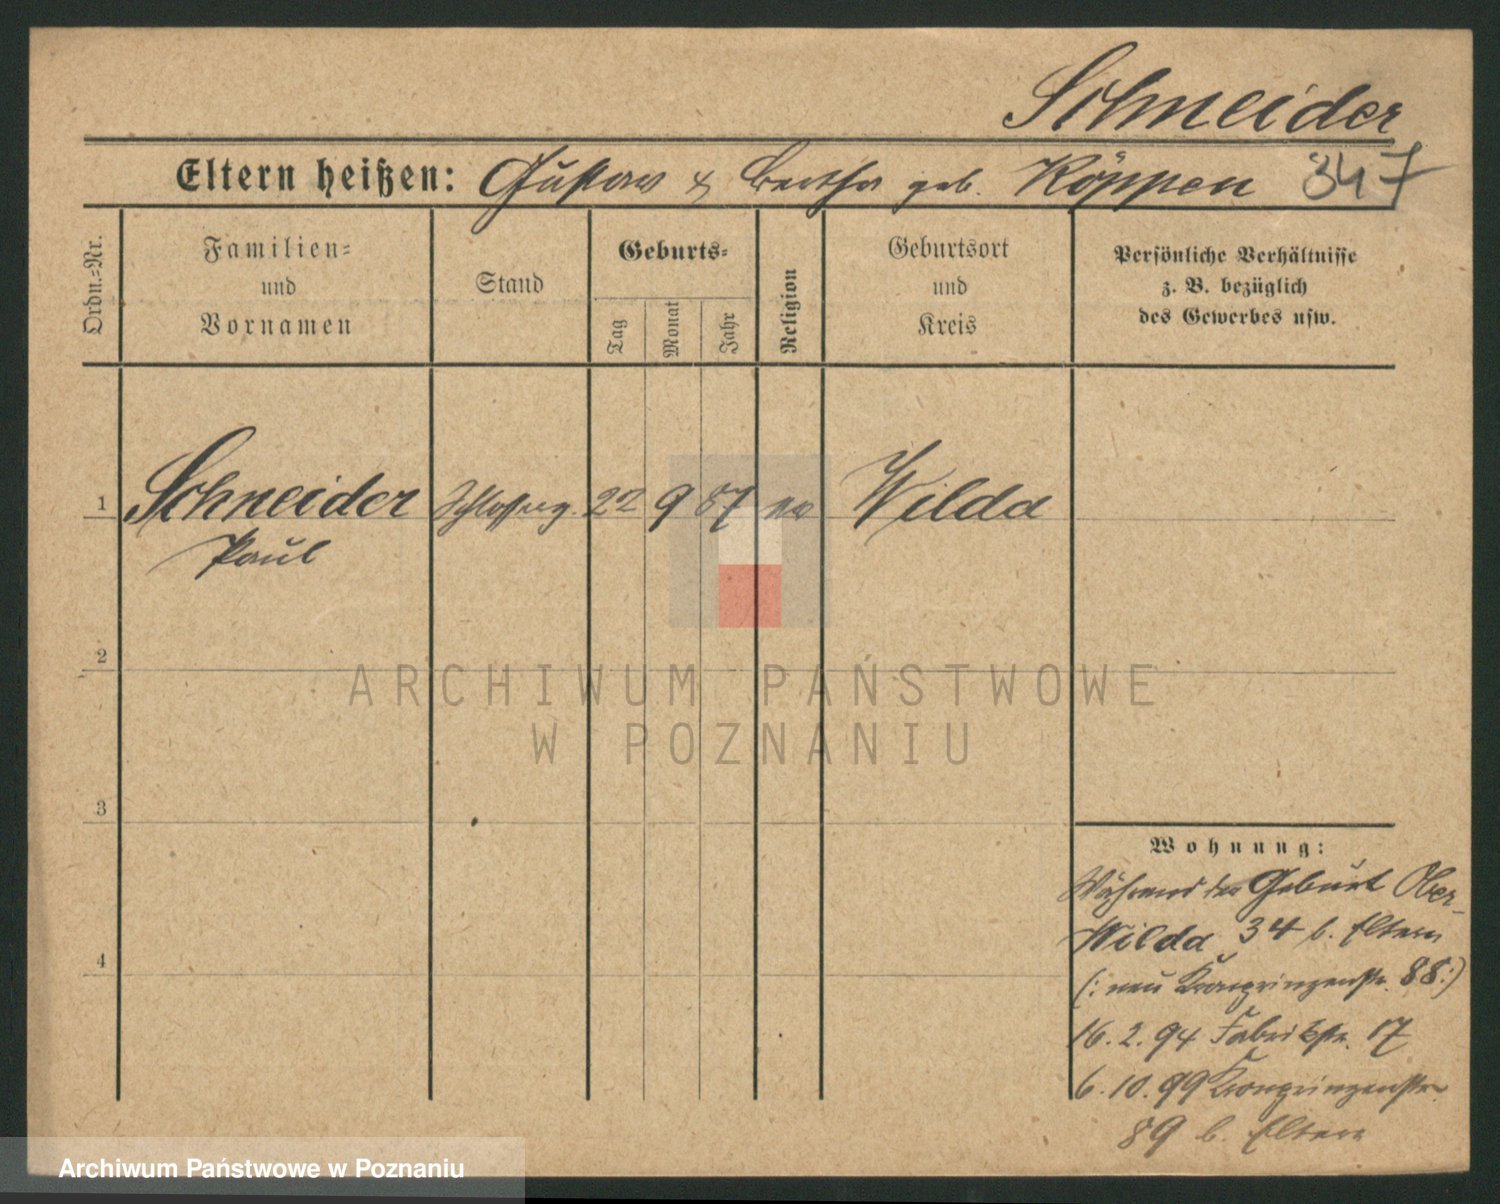 Schneider
Eltern heißen: Gustav & Bertha geb. Köppen 347
Ordn.-Nr.
Familien-
und
Vornamen
Stand
Geburts-
Tag
Monat
Jahr
Religion
Geburtsort
und
Kreis
Persönliche Verhältnisse
z. B. bezüglich
des Gewerbes usw.
1 Schneider Schlosserg. 22 9 87 ev Wilda
Paul
2
ARCHIWUM PAŃSTWOWE
W POZNANIU
3
4
Wohnung:
Während der Geburt Ober-
Wilda 34 b. Eltern
(: neu Kronprinzenstr. 88:)
16. 2. 94 Fabrikstr. 17
6. 10. 99 Kronprinzenstr.
89 b. Eltern
Archiwum Państwowe w Poznaniu